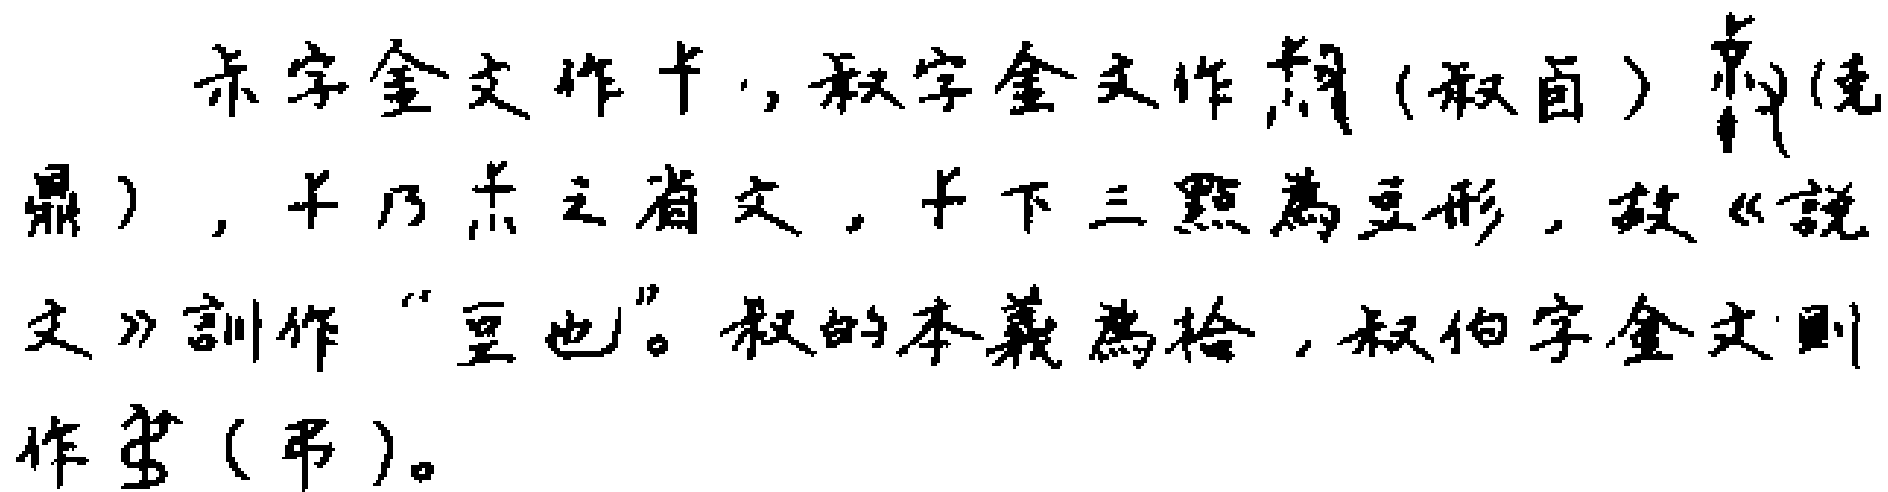 尗字金文作𠂇,叔字金文作(叔卣)(克
鼎),乃之省文,下三點為豆形,故《説
文》訓作“豆也”。叔的本義為拾,叔伯字金文則
作(弔)。